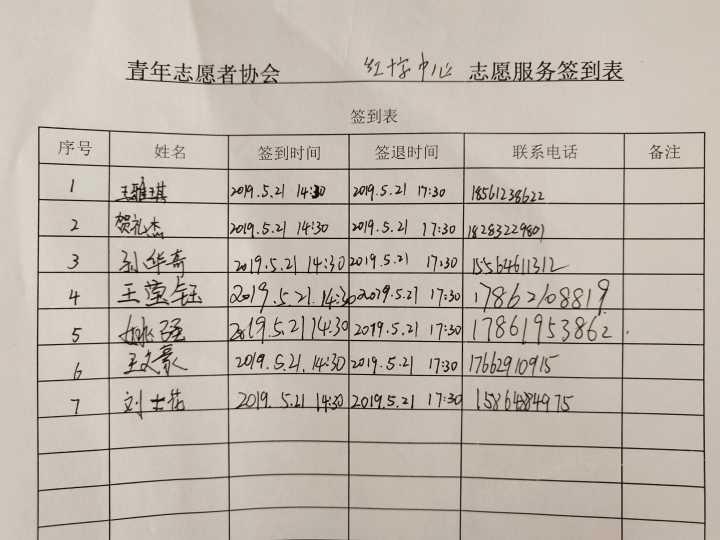 青年志愿者协会 红十字中心 志愿服务签到表
签到表
序号 姓名 签到时间 签退时间 联系电话 备注
1 王雅琪 2019.5.21 14:30 2019.5.21 17:30 18561238622
2 贺礼杰 2019.5.21 14:30 2019.5.21 17:30 18283229801
3 孙华奇 2019.5.21 14:30 2019.5.21 17:30 15564611312
4 王 钰 2019.5.21 14:30 2019.5.21 17:30 17862108819
5 姚强 2019.5.21 14:30 2019.5.21 17:30 17861953862
6 王文豪 2019.5.21 14:30 2019.5.21 17:30 17662910915
7 刘士佑 2019.5.21 14:30 2019.5.21 17:30 1586484975